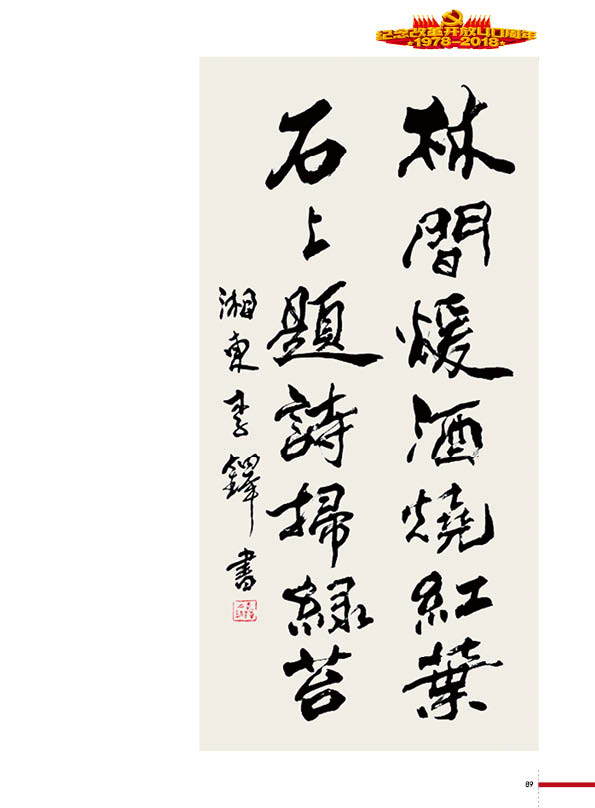 纪念改革开放40周年
★1978-2018★
林間煖酒燒紅葉
石上題詩掃綠苔
湘東李鐸書
89